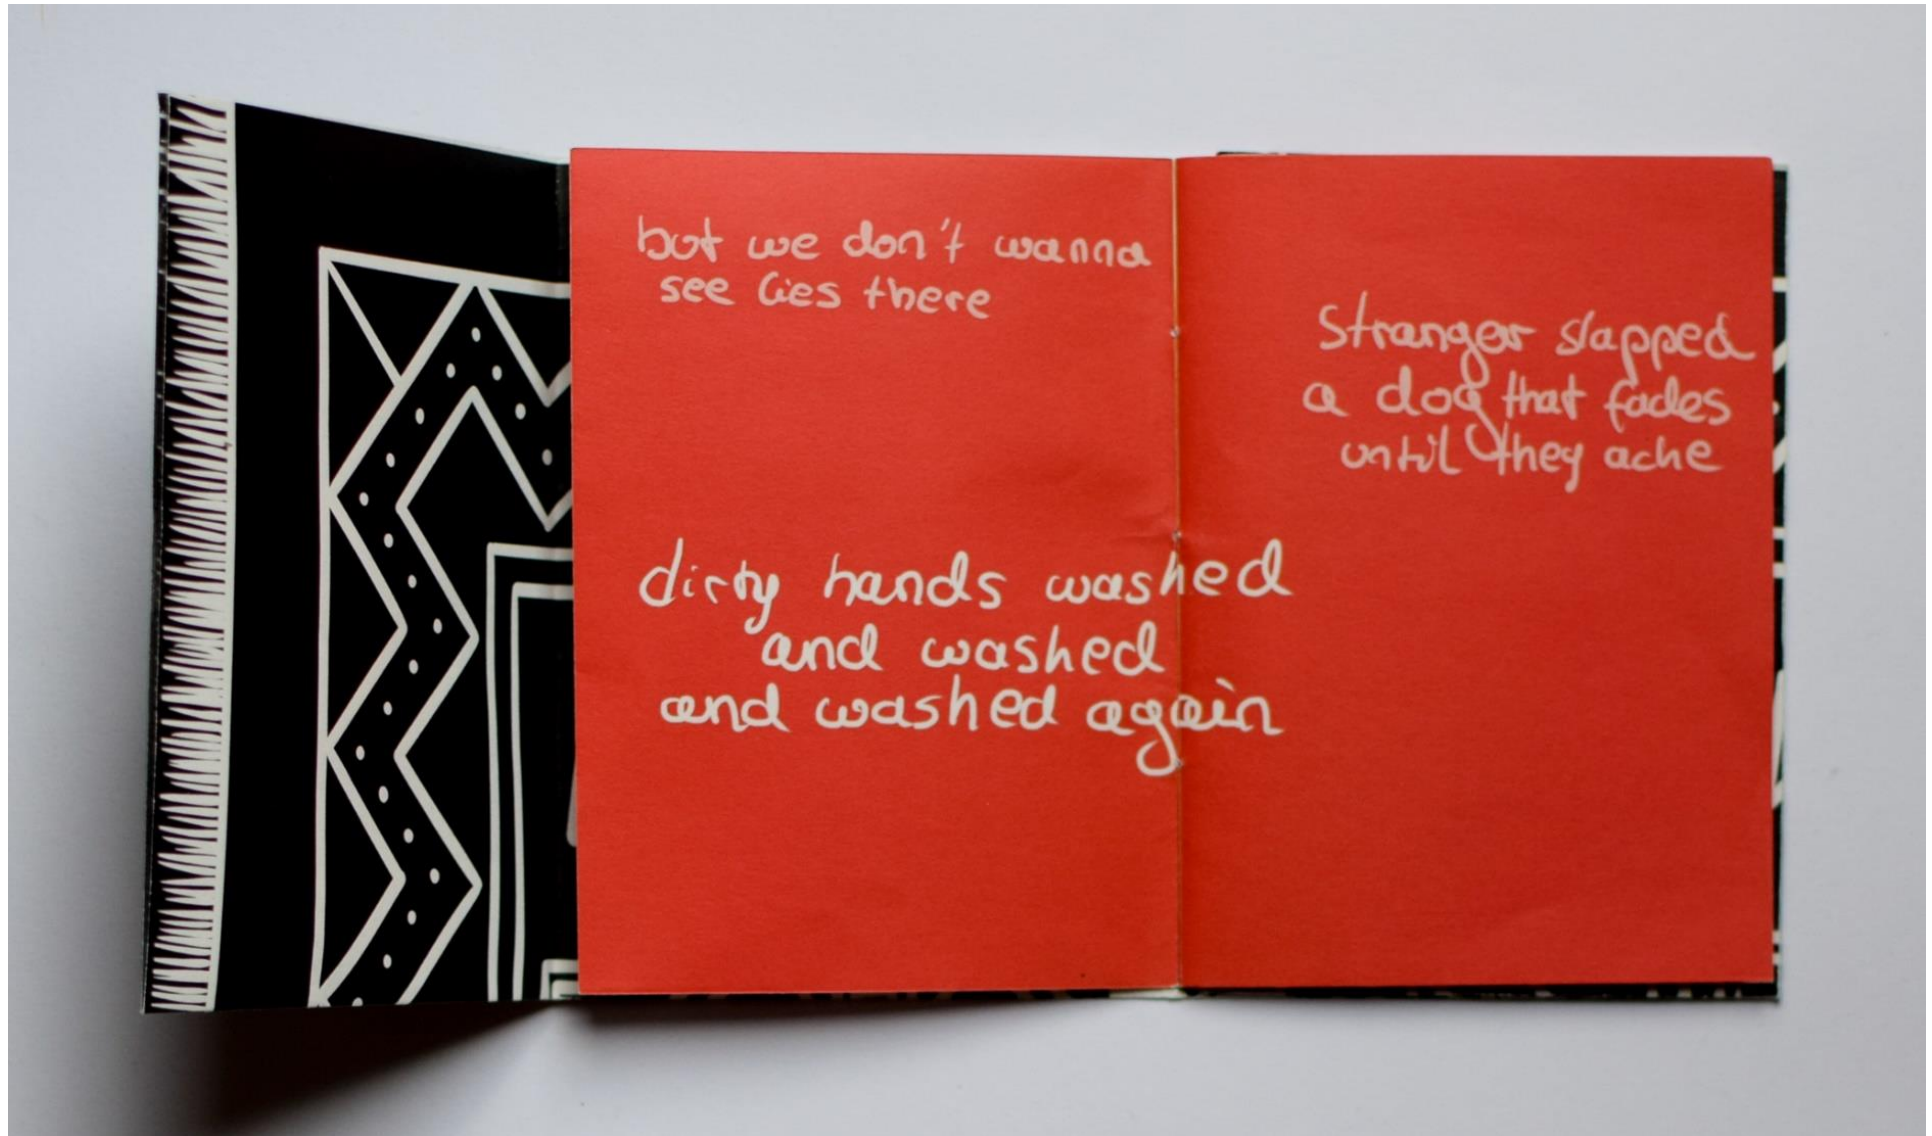 but we don't wanna
see lies there
dirty hands washed
and washed
and washed again
Stranger slapped
a dog that fades
until they ache